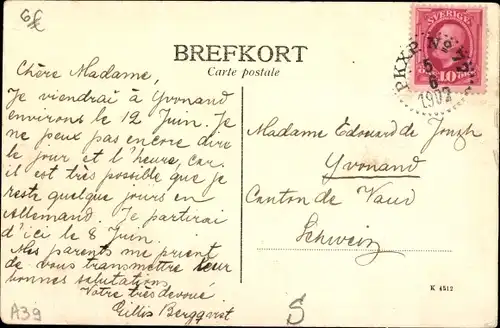 6
SVERIGE
10
BREFKORT
Carte postale
PKXP No 77
5
6
1907
Chère Madame,
Je viendrai à Yvonand
environs le 12 Juin. Je
ne peux pas encore dire
le jour et l'heure, car
il est très possible que je
reste quelque jours en
Allemand. Je partirai
d'ici le 8 Juin.
Mes parents me prient
de vous transmettre leur
bonnes salutations
Votre très devoué
Gillis Bergqvist
Madame Edouard de Jongh
Yvonand
Canton de Vaud
Schweiz
K 4512
A39
S